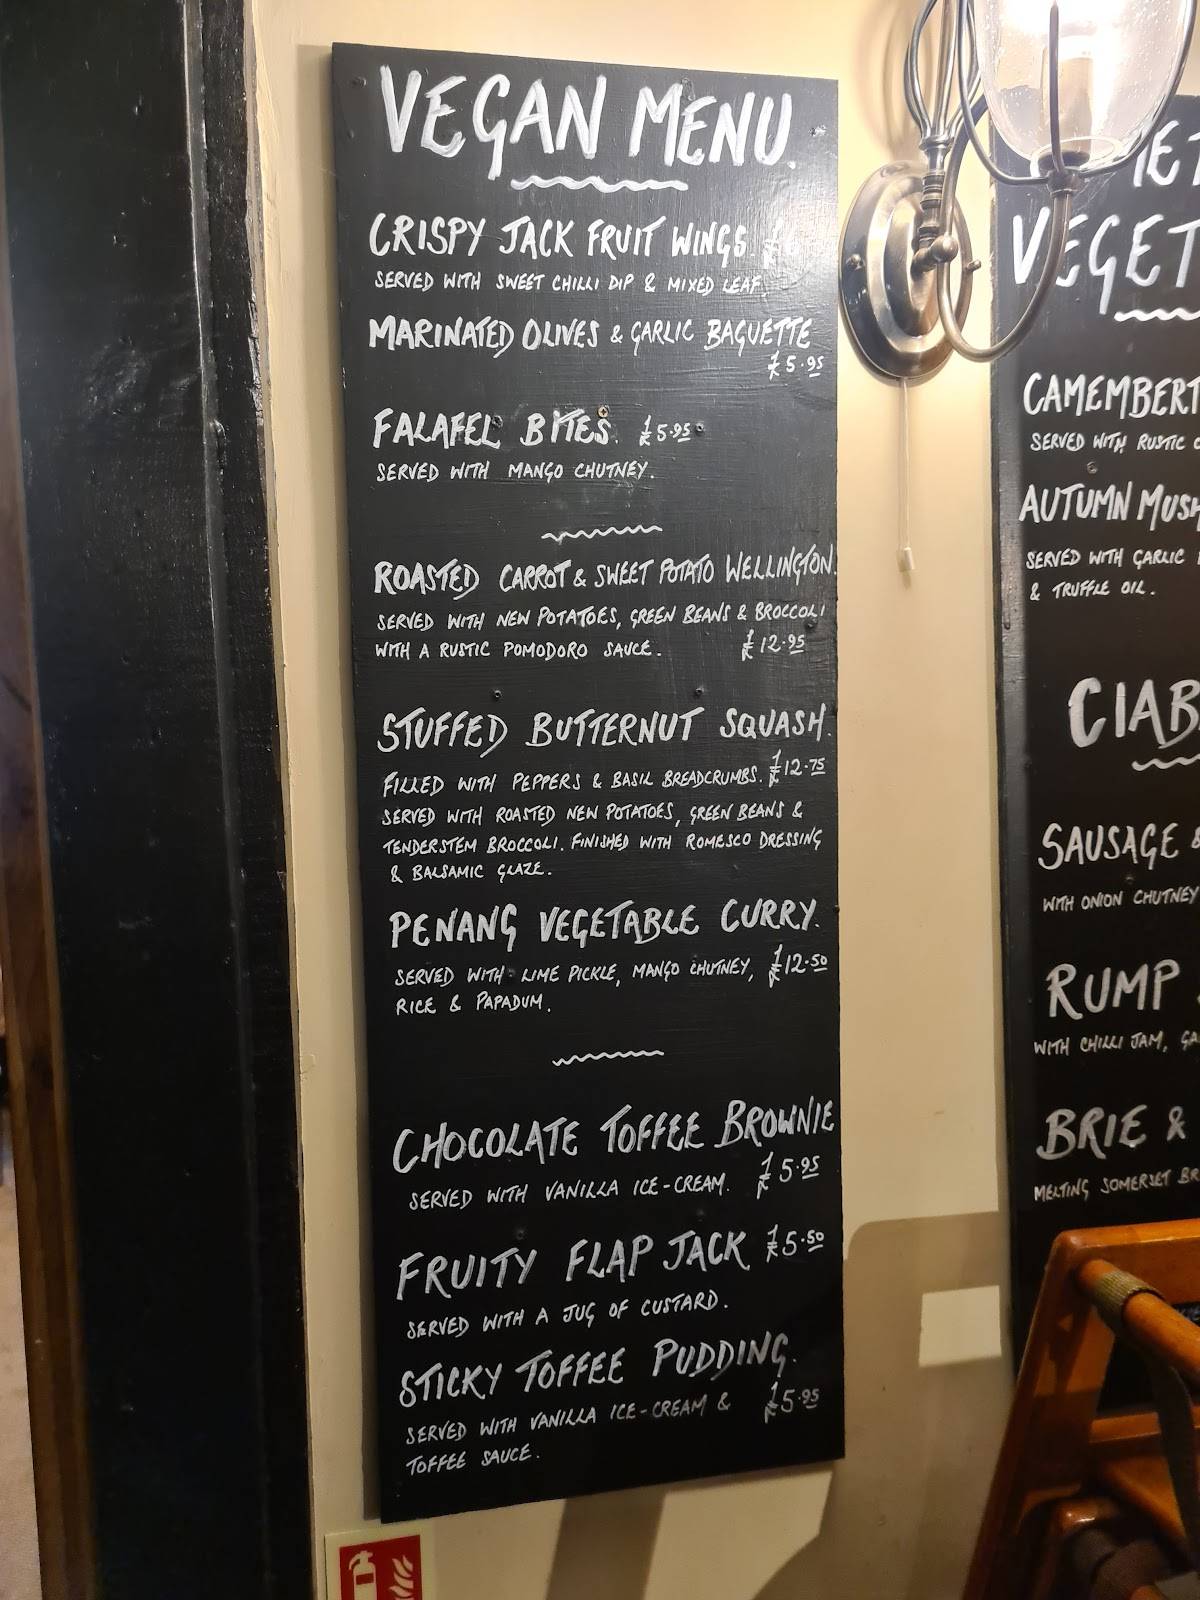 VEGAN MENU.
CRISPY JACK FRUIT WINGS.
SERVED WITH SWEET CHILLI DIP & MIXED LEAF.
MARINATED OLIVES & GARLIC BAGUETTE
£5.95
FALAFEL BITES. £5.95
SERVED WITH MANGO CHUTNEY.
ROASTED CARROT & SWEET POTATO WELLINGTON.
SERVED WITH NEW POTATOES, GREEN BEANS & BROCCOLI
WITH A RUSTIC POMODORO SAUCE. £12.95
STUFFED BUTTERNUT SQUASH.
FILLED WITH PEPPERS & BASIL BREADCRUMBS. £12.75
SERVED WITH ROASTED NEW POTATOES, GREEN BEANS &
TENDERSTEM BROCCOLI. FINISHED WITH ROMESCO DRESSING
& BALSAMIC GLAZE.
PENANG VEGETABLE CURRY.
SERVED WITH LIME PICKLE, MANGO CHUTNEY, £12.50
RICE & PAPADUM.
CHOCOLATE TOFFEE BROWNIE
SERVED WITH VANILLA ICE-CREAM. £5.95
FRUITY FLAP JACK £5.50
SERVED WITH A JUG OF CUSTARD.
STICKY TOFFEE PUDDING.
SERVED WITH VANILLA ICE-CREAM & £5.95
TOFFEE SAUCE.
VEGET
CAMEMBERT
SERVED WITH RUSTIC
AUTUMN MUSH
SERVED WITH GARLIC
& TRUFFLE OIL.
CIAB
SAUSAGE &
WITH ONION CHUTNEY
RUMP
WITH CHILLI JAM, GA
BRIE &
MELTING SOMERSET BR